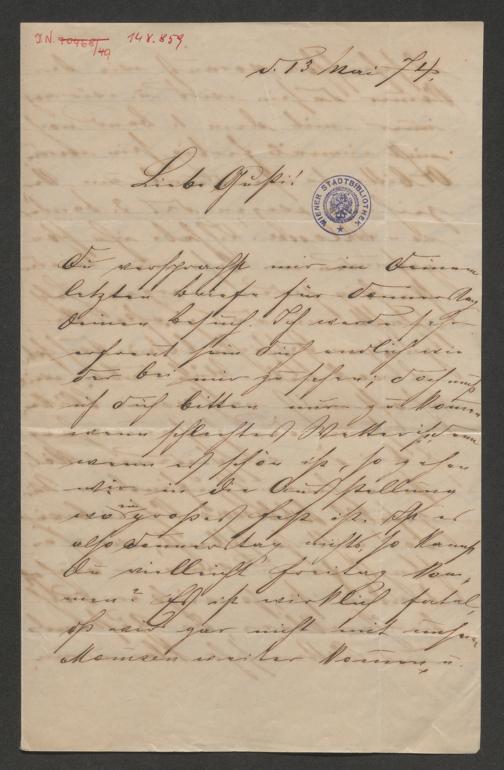 I.N. 70468/49 148.859
d. 13 Mai 74.
Liebe Gusti!
WIENER STADTBIBLIOTHEK
Du versprachst mir in Deinem
letzten Briefe für Donnerstag
Deinen Besuch. Ich werde sehr
erfreut sein Dich endlich wie
der bei mir zu sehen; doch muß
ich Dich bitten nur zu kommen
wenn schlechtes Wetter ist, denn
wenn es schön ist, so gehen
wir in die Ausstellung
wo ein großes Fest ist. Ist es
also Donnerstag nichts, so kannst
Du vielleicht Freitag kom¬
men? Es ist wirklich fatal,
ich gar nicht mit
weiter kommen u.